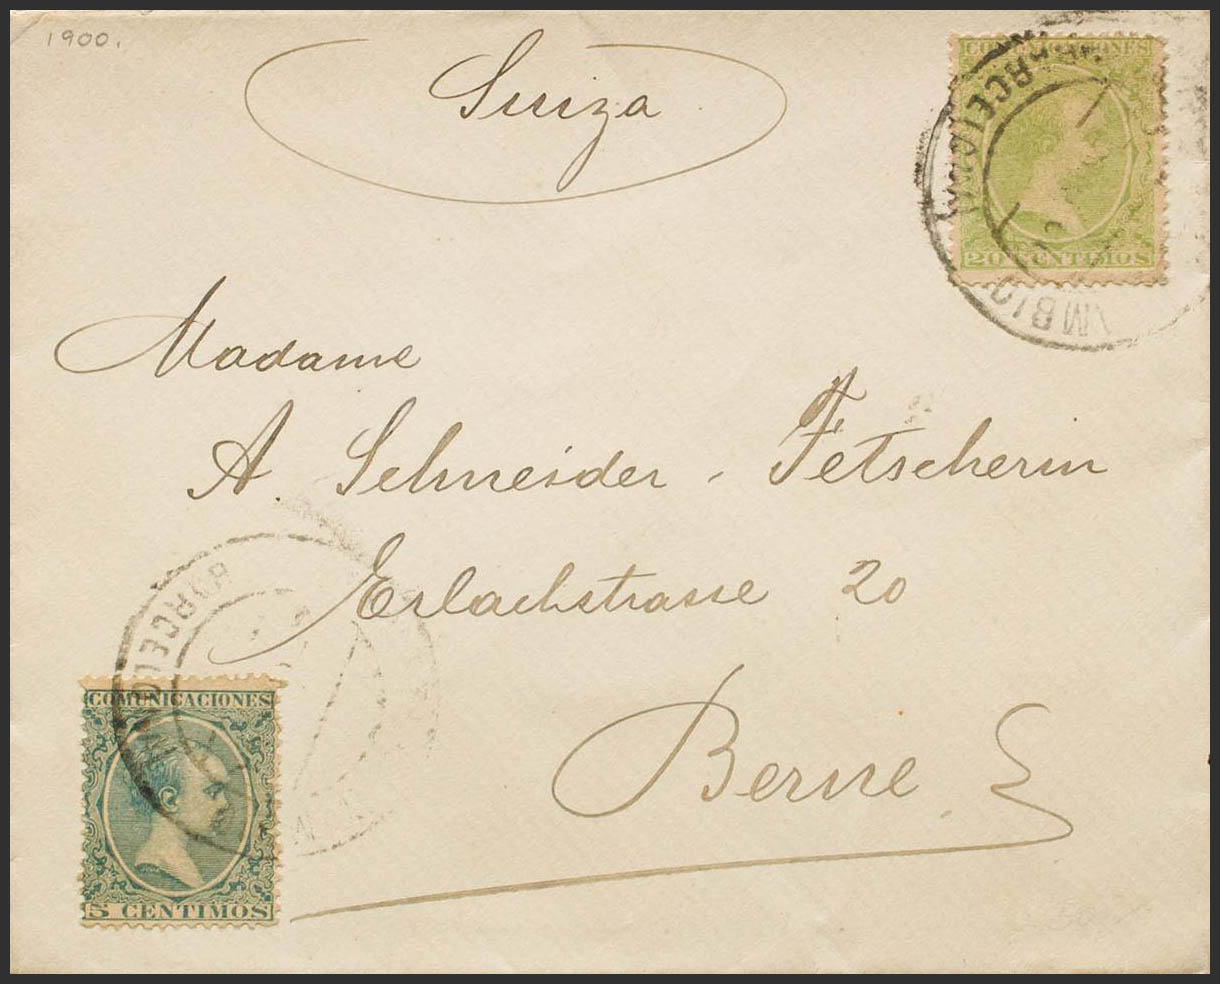 1900.
Suiza
COMUNICACIONES
20 CENTIMOS
BARCELONA
Madame
A. Schneider - Fetscherin
Erlachstrasse 20
Berne
BARCELONA
COMUNICACIONES
5 CENTIMOS